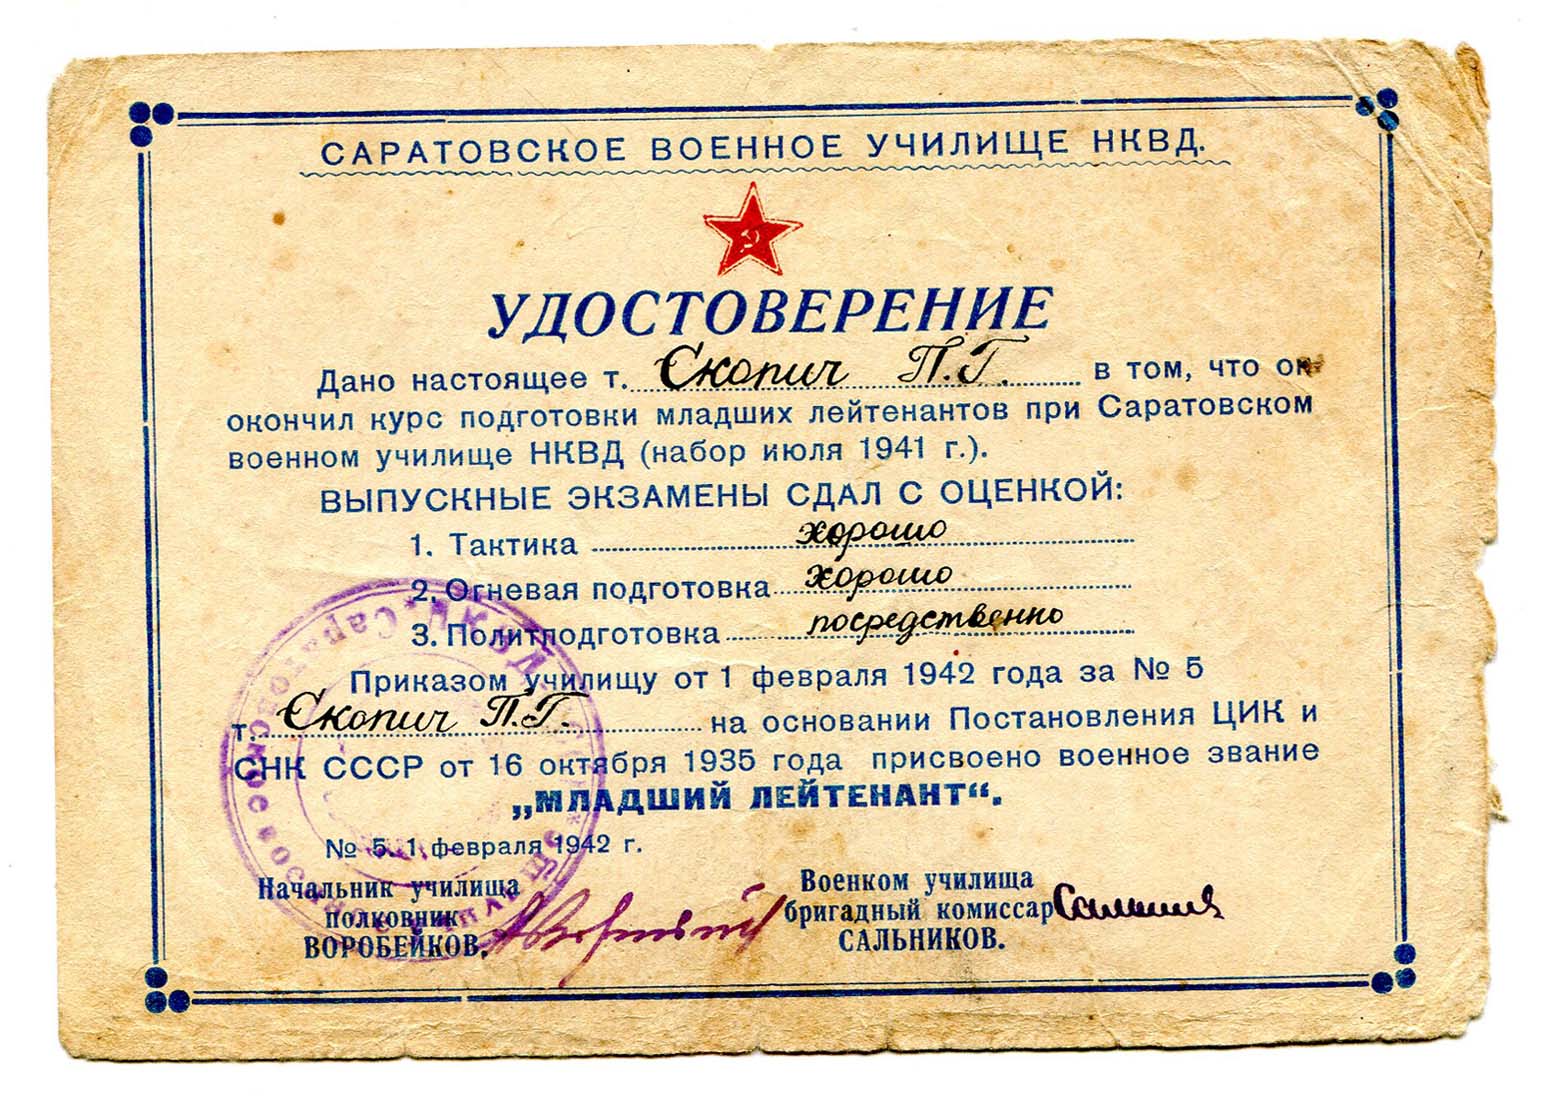 САРАТОВСКОЕ ВОЕННОЕ УЧИЛИЩЕ НКВД.
УДОСТОВЕРЕНИЕ
Дано настоящее т. Скопич П.Г. в том, что он
окончил курс подготовки младших лейтенантов при Саратовском
военном училище НКВД (набор июля 1941 г.).
ВЫПУСКНЫЕ ЭКЗАМЕНЫ СДАЛ С ОЦЕНКОЙ:
1. Тактика хорошо
2. Огневая подготовка хорошо
3. Политподготовка посредственно
Приказом училищу от 1 февраля 1942 года за № 5
т. Скопич П.Г. на основании Постановления ЦИК и
СНК СССР от 16 октября 1935 года присвоено военное звание
„МЛАДШИЙ ЛЕЙТЕНАНТ“.
№ 5. 1 февраля 1942 г.
Начальник училища
полковник
ВОРОБЕЙКОВ.
Военком училища
бригадный комиссар
САЛЬНИКОВ.
НКВД Саратовское военное училище